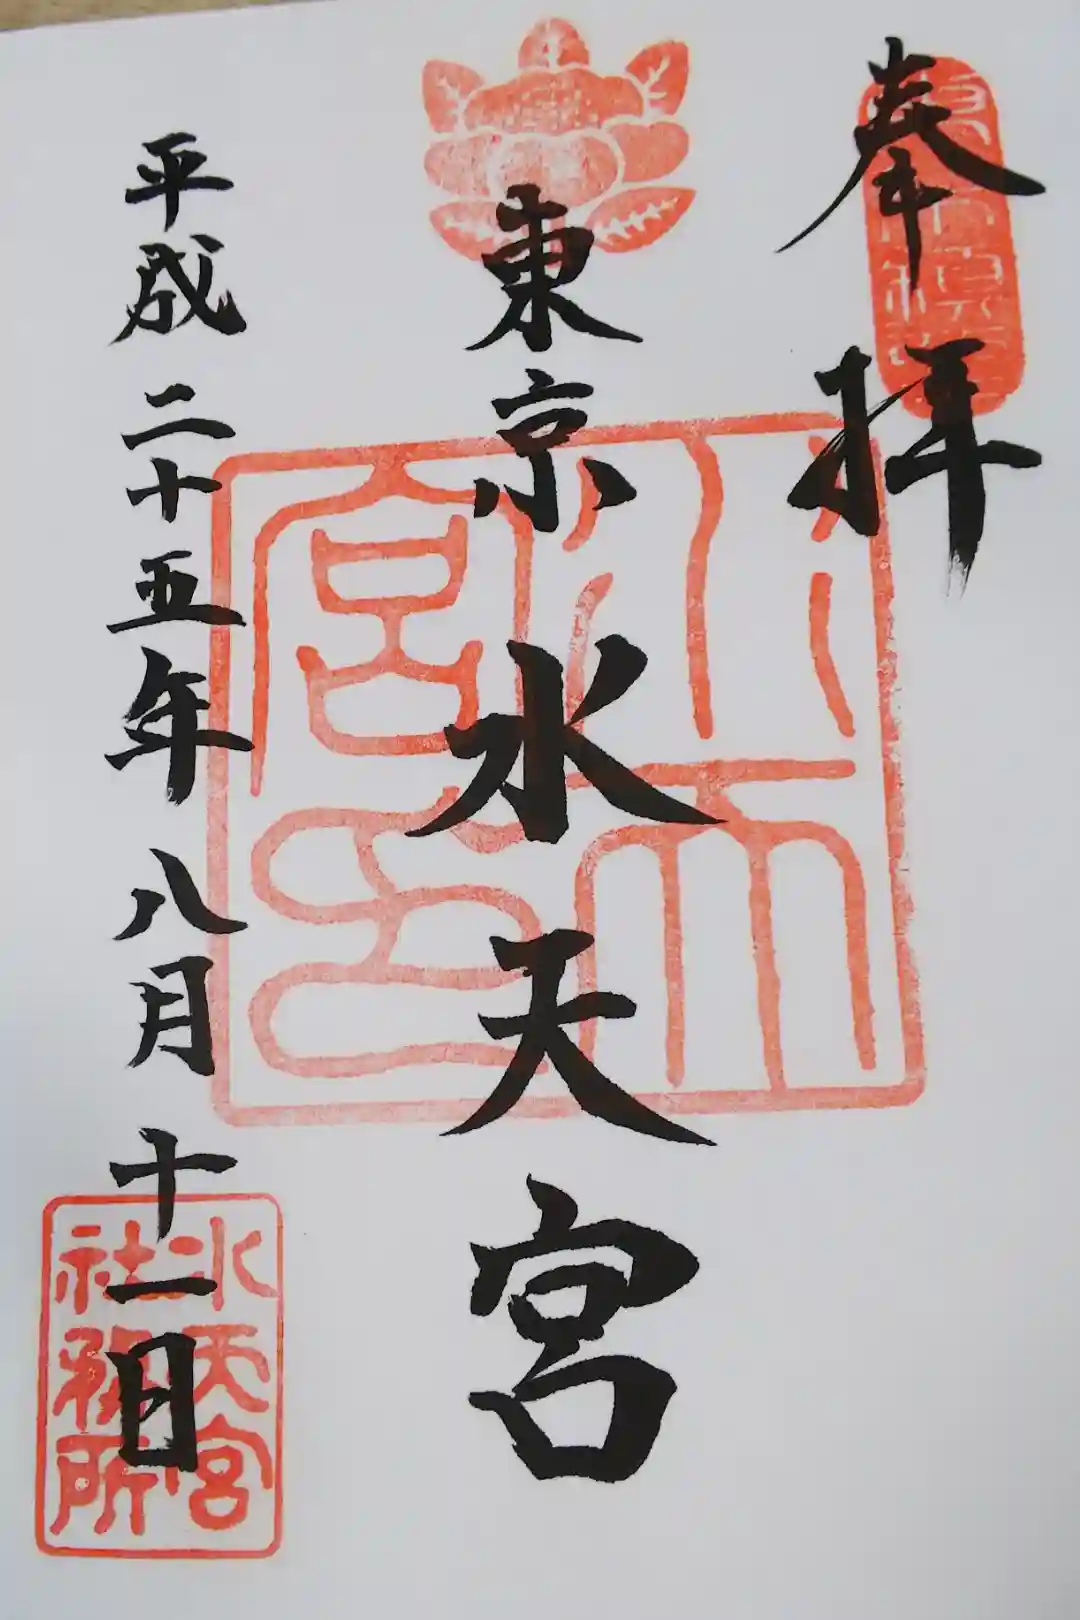 奉拝
東京水天宮
平成二十五年八月十一日
水天宮之印
水天宮
社務所